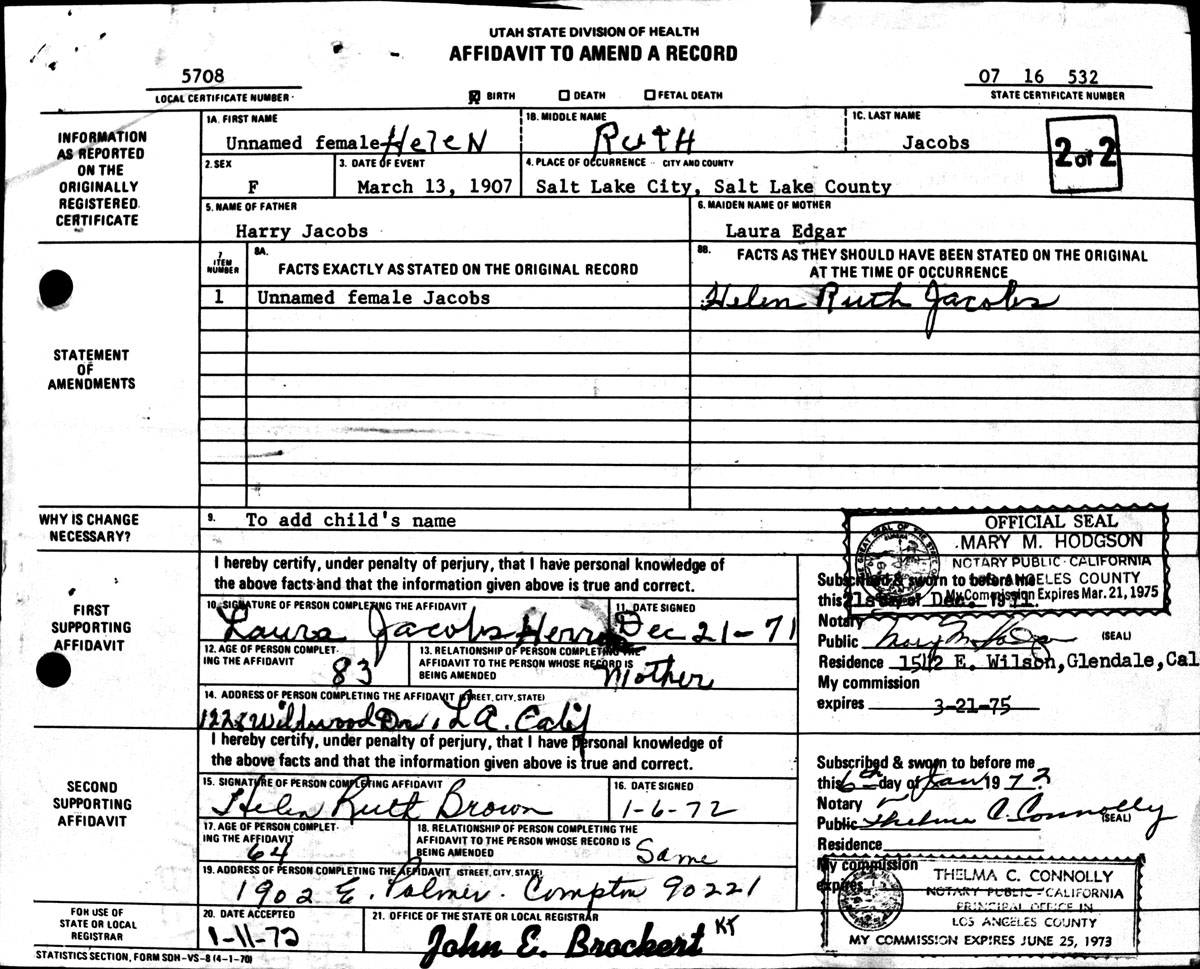 UTAH STATE DIVISION OF HEALTH
AFFIDAVIT TO AMEND A RECORD
5708
LOCAL CERTIFICATE NUMBER
BIRTH DEATH FETAL DEATH
07 16 532
STATE CERTIFICATE NUMBER
INFORMATION
AS REPORTED
ON THE
ORIGINALLY
REGISTERED
CERTIFICATE
1A. FIRST NAME
Unnamed female HeleN
1B. MIDDLE NAME
RutH
1C. LAST NAME
Jacobs
2 of 2
2. SEX
F
3. DATE OF EVENT
March 13, 1907
4. PLACE OF OCCURRENCE - CITY AND COUNTY
Salt Lake City, Salt Lake County
5. NAME OF FATHER
Harry Jacobs
6. MAIDEN NAME OF MOTHER
Laura Edgar
STATEMENT
OF
AMENDMENTS
7
ITEM
NUMBER
8A.
FACTS EXACTLY AS STATED ON THE ORIGINAL RECORD
8B.
FACTS AS THEY SHOULD HAVE BEEN STATED ON THE ORIGINAL
AT THE TIME OF OCCURRENCE
1
Unnamed female Jacobs
Helen Ruth Jacobs
WHY IS CHANGE
NECESSARY?
9. To add child's name
FIRST
SUPPORTING
AFFIDAVIT
I hereby certify, under penalty of perjury, that I have personal knowledge of
the above facts and that the information given above is true and correct.
10. SIGNATURE OF PERSON COMPLETING THE AFFIDAVIT
Laura Jacobs
11. DATE SIGNED
Dec 21-71
12. AGE OF PERSON COMPLET-
ING THE AFFIDAVIT
83
13. RELATIONSHIP OF PERSON COMPLETING THE
AFFIDAVIT TO THE PERSON WHOSE RECORD IS
BEING AMENDED
Mother
14. ADDRESS OF PERSON COMPLETING THE AFFIDAVIT (STREET, CITY, STATE)
Wildwood Dr., L A. Calif
OFFICIAL SEAL
MARY M. HODGSON
NOTARY PUBLIC - CALIFORNIA
LOS ANGELES COUNTY
My Commission Expires Mar. 21, 1975
Subscribed & sworn to before me
this 21st day of Dec. 1971.
Notary
Public Mary M. Hodgson (SEAL)
Residence 1512 E. Wilson, Glendale, Cal
My commission
expires 3-21-75
SECOND
SUPPORTING
AFFIDAVIT
I hereby certify, under penalty of perjury, that I have personal knowledge of
the above facts and that the information given above is true and correct.
15. SIGNATURE OF PERSON COMPLETING AFFIDAVIT
Helen Ruth Brown
16. DATE SIGNED
1-6-72
17. AGE OF PERSON COMPLET-
ING THE AFFIDAVIT
64
18. RELATIONSHIP OF PERSON COMPLETING THE
AFFIDAVIT TO THE PERSON WHOSE RECORD IS
BEING AMENDED
Same
19. ADDRESS OF PERSON COMPLETING THE AFFIDAVIT (STREET, CITY, STATE)
1902 E. Palmer. Compton 90221
Subscribed & sworn to before me
this 6th day of Jan 1972.
Notary
Public Thelma C. Connolly (SEAL)
Residence
My commission
expires
THELMA C. CONNOLLY
NOTARY PUBLIC - CALIFORNIA
PRINCIPAL OFFICE IN
LOS ANGELES COUNTY
MY COMMISSION EXPIRES JUNE 25, 1973
FOR USE OF
STATE OR LOCAL
REGISTRAR
20. DATE ACCEPTED
1-11-72
21. OFFICE OF THE STATE OR LOCAL REGISTRAR
John E. Brockert KT
STATISTICS SECTION, FORM SDH-VS-8 (4-1-70)